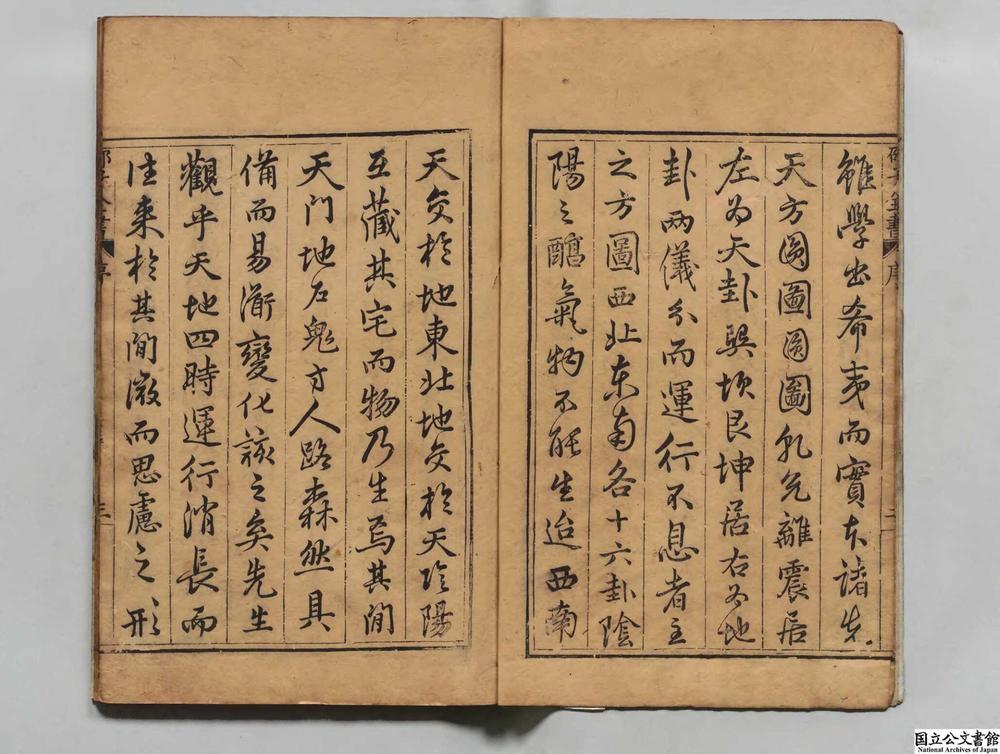 雖學出希夷而實本諸先
天方圓圖圓圖乹兌離震居
左為天卦巽坎艮坤居右為地
卦兩儀分而運行不息者主
之方圖西北東南各十六卦陰
陽之醕氣物不能生迨西南
天交於地東北地交於天陰陽
互藏其宅而物乃生焉其間
天門地户鬼方人路森然具
備而易漸變化該之矣先生
觀乎天地四時運行消長而
往來於其間微而思慮之形
邵子全書
序
二
邵子全書
序
三
国立公文書館
National Archives of Japan